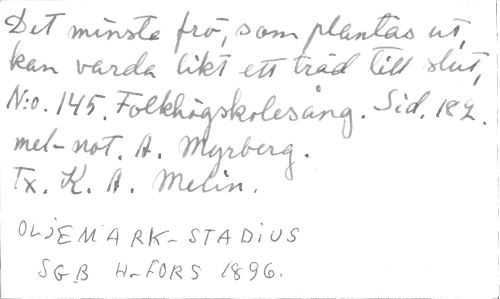 Det minsta frö, som plantas ut,
kan varda likt ett träd till slut,
N:o. 145. Folkhögskolesång. Sid. 182.
mel-not. A. Myrberg.
Tx. K. A. Melin.
OLJEMARK-STADIUS
SGB H-FORS 1896.